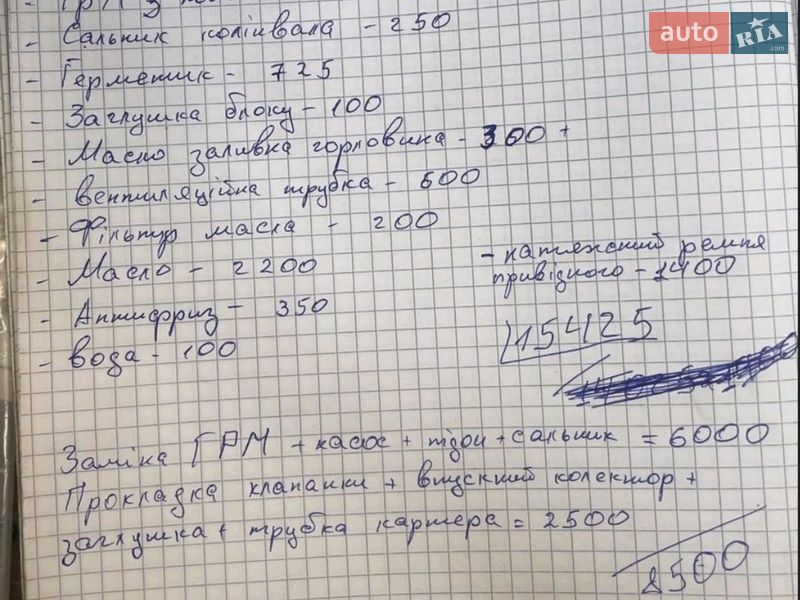 - Сальник колінвала - 250
- Герметик - 725
- Заглушка блоку - 100
- Масло заливна горловина - 300 +
- Вентиляційна трубка - 600
- Фільтр масла - 200
- Масло - 2200
- Антифриз - 350
- Вода - 100
- натяжний ремня
привідного - 1400
15425
Заміна ГРМ + насос + + сальник = 6000
Прокладка клапанки + впускний колектор +
заглушка + трубка картера = 2500
8500
auto RIA .com